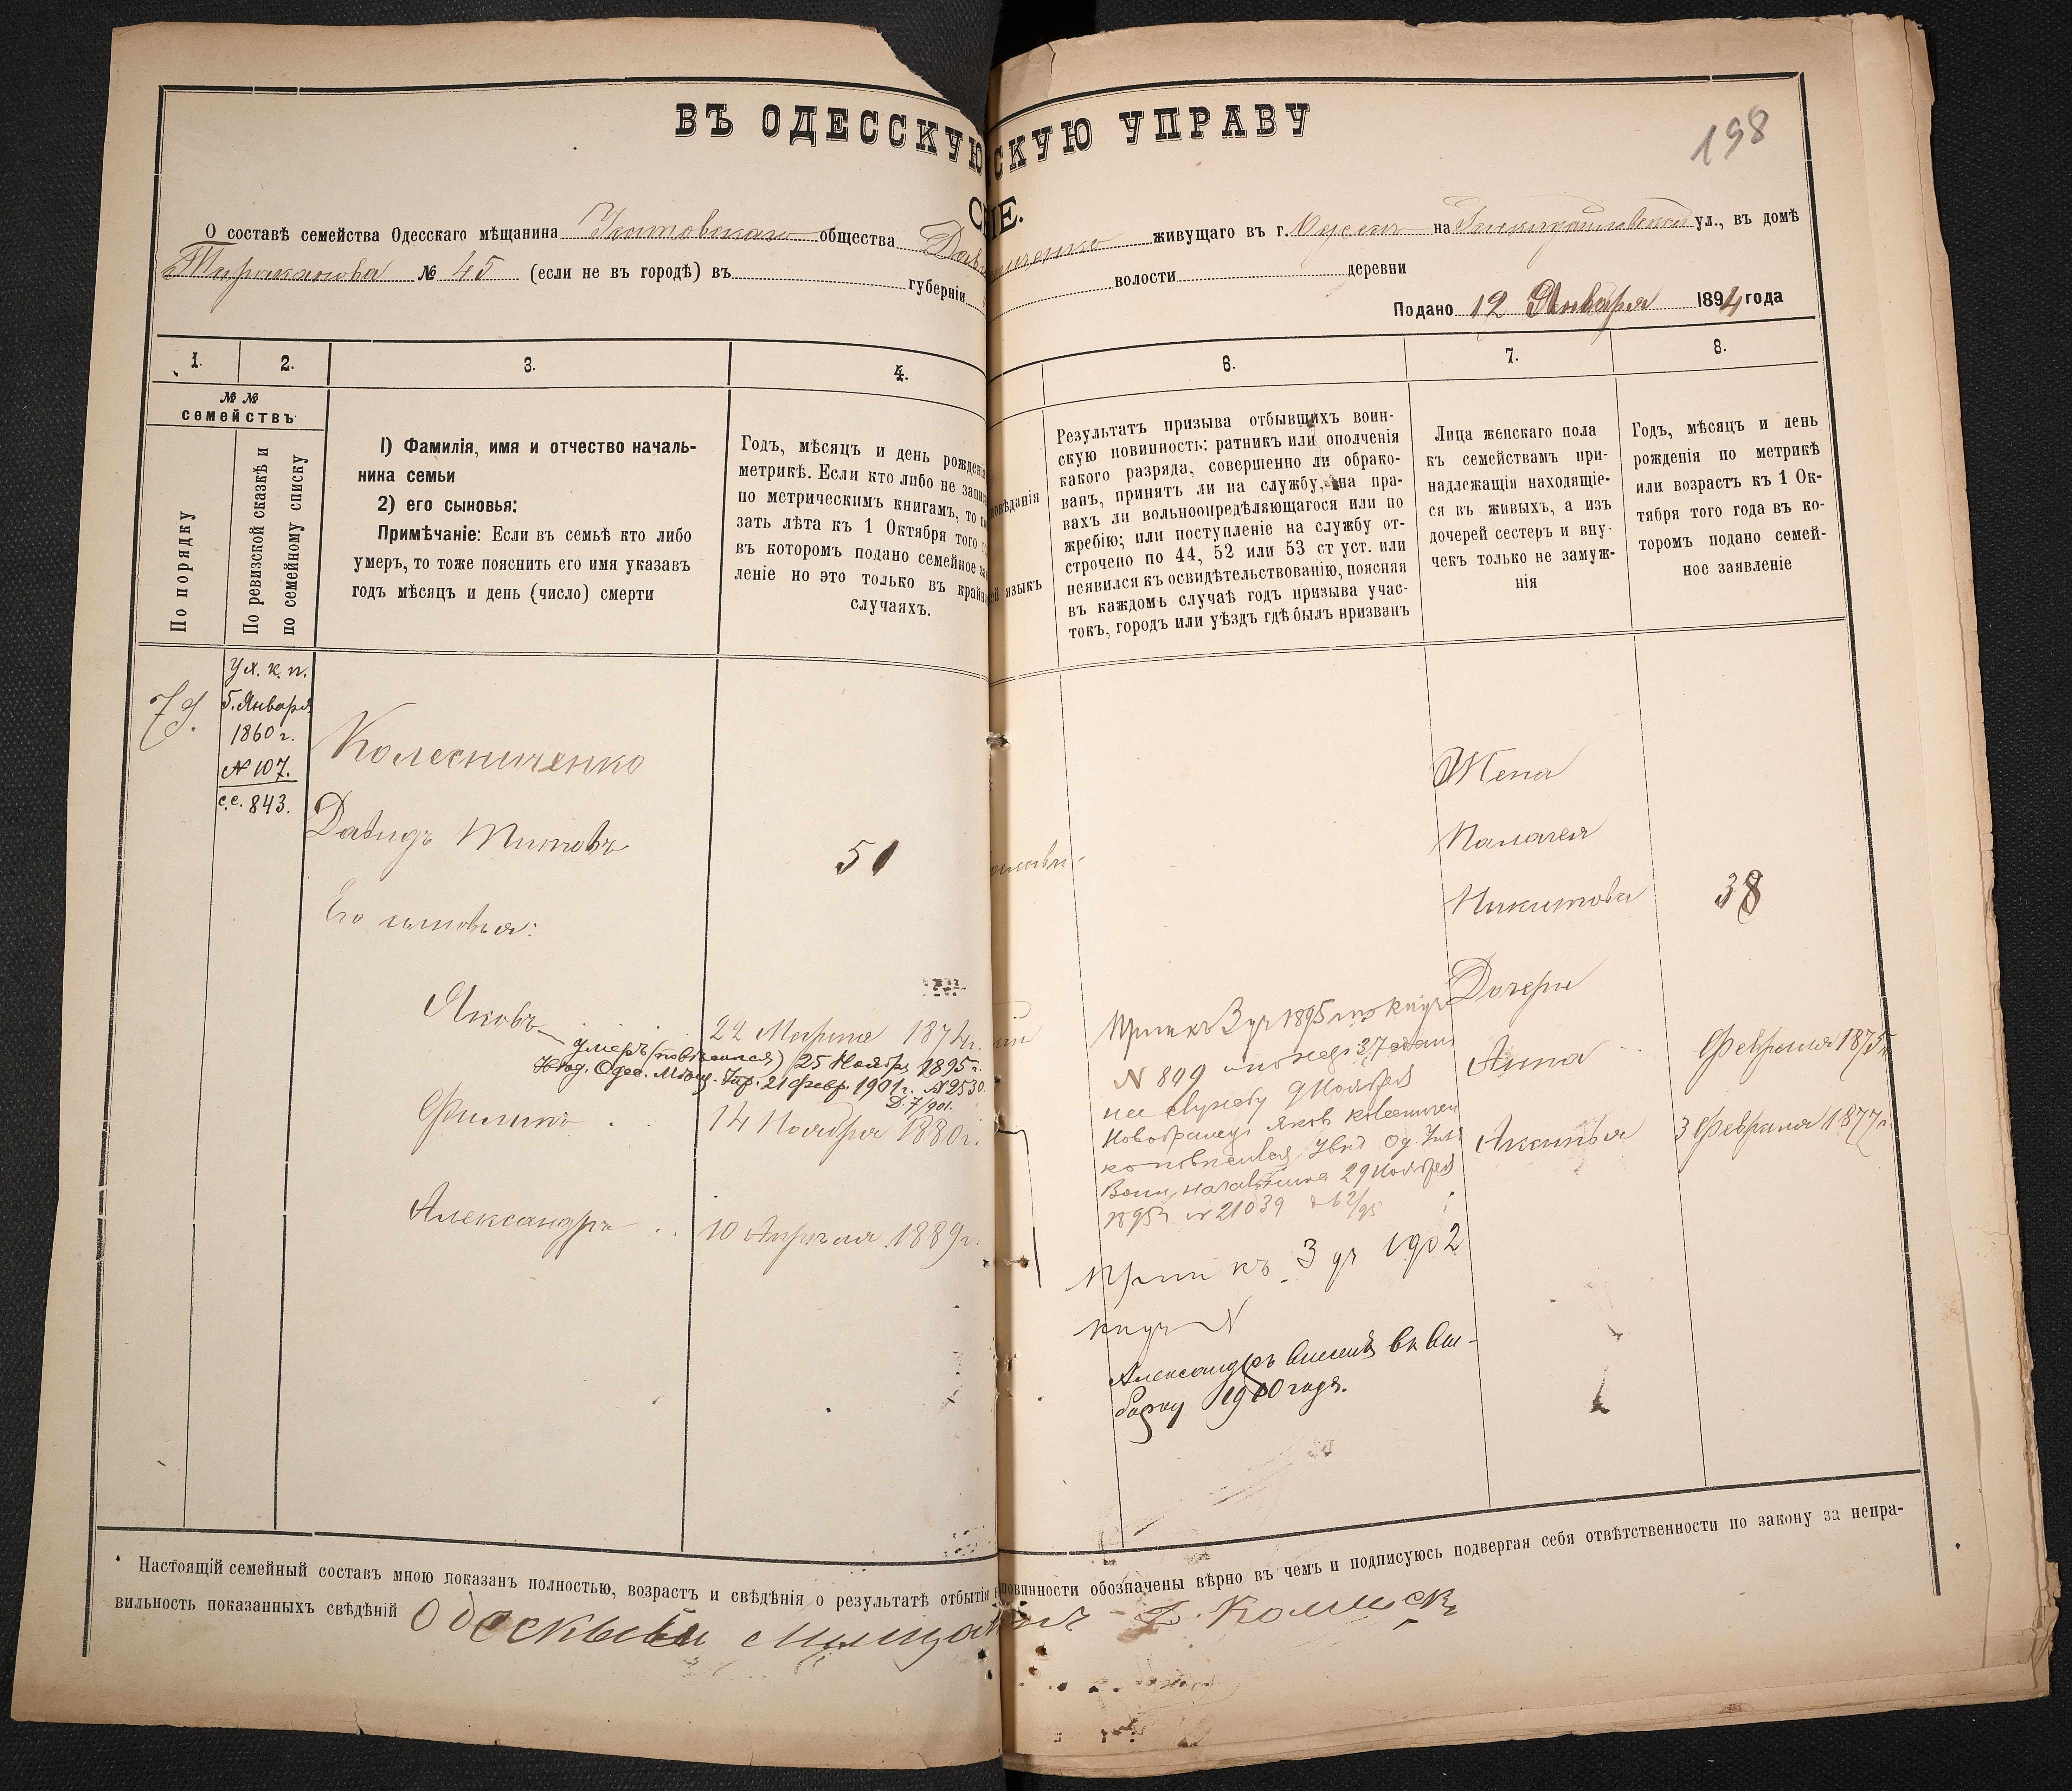 ВЪ ОДЕССКУЮ
СКУЮ УПРАВУ
198
О составѣ семейства Одесскаго мѣщанина общества живущаго въ г. на ул., въ домѣ
№ 45 (если не въ городѣ) въ губерніи волости деревни
Подано 12 Января 1894 года
1.
2.
3.
4.
6.
7.
8.
№ №
семействъ
По порядку
По ревизской сказкѣ и
по семейному списку
1) Фамилія, имя и отчество началь-
ника семьи
2) его сыновья:
Примѣчаніе: Если въ семьѣ кто либо
умеръ, то тоже пояснить его имя указавъ
годъ мѣсяцъ и день (число) смерти
Годъ, мѣсяцъ и день рожденія
метрикѣ. Если кто либо не
по метрическимъ книгамъ, то
зать лѣта къ 1 Октября того
въ котором подано семейное
леніе но это только въ
случаяхъ.
языкъ
Результатъ призыва отбывщихъ воин-
скую повинность: ратникъ или ополченія
какого разряда, совершенно ли обрако-
ванъ, принятъ ли на службу, на пра-
вахъ ли вольноопредѣляющагося или по
жребію; или поступленіе на службу от-
строчено по 44, 52 или 53 ст уст. или
неявился къ освидѣтельствованію, поясняя
въ каждомъ случаѣ годъ призыва учас-
токъ, городъ или уѣздъ гдѣ былъ призванъ
Лица женскаго пола
къ семействамъ при-
надлежащія находящіе-
ся въ живыхъ, а изъ
дочерей сестеръ и вну-
чекъ только не замуж-
нія
Годъ, мѣсяцъ и день
рожденія по метрикѣ
или возрастъ къ 1 Ок-
тября того года въ ко-
торомъ подано семей-
ное заявленіе
Ук. к. п.
5. Января
1860 г.
№ 107.
с.с. 843.
Колесниченко
Давидъ Титовъ
51
Его сыновья:
Яковъ
22 Марта 1874 г.
умеръ (повѣсился) 25 Ноября 1895 г.
Одес. Мѣщ. Упр. 21 февр. 1901 г. № 2530.
Д. 7/901.
Филипъ
14 Ноября 1880 г.
Александръ
10 Апрѣля 1889 г.
къ 3 уч 1895
N 809
на службу 9 Ноября
Новобранецъ Яковъ
29 Ноября
1895 г. № 21039
къ 3 уч 1902
N
Александръ внесенъ въ вы-
борку 1910 года.
Жена
Палагея
Никитова
38
Дочери
Анна
Февраля 1875 г.
Аксинья
3 Февраля 1877 г.
Настоящій семейный составъ мною показанъ полностью, возрастъ и свѣдѣнія о результатѣ отбытія повинности обозначены вѣрно въ чемъ и подписуюсь подвергая себя отвѣтственности по закону за непра-
вильность показанныхъ свѣдѣній